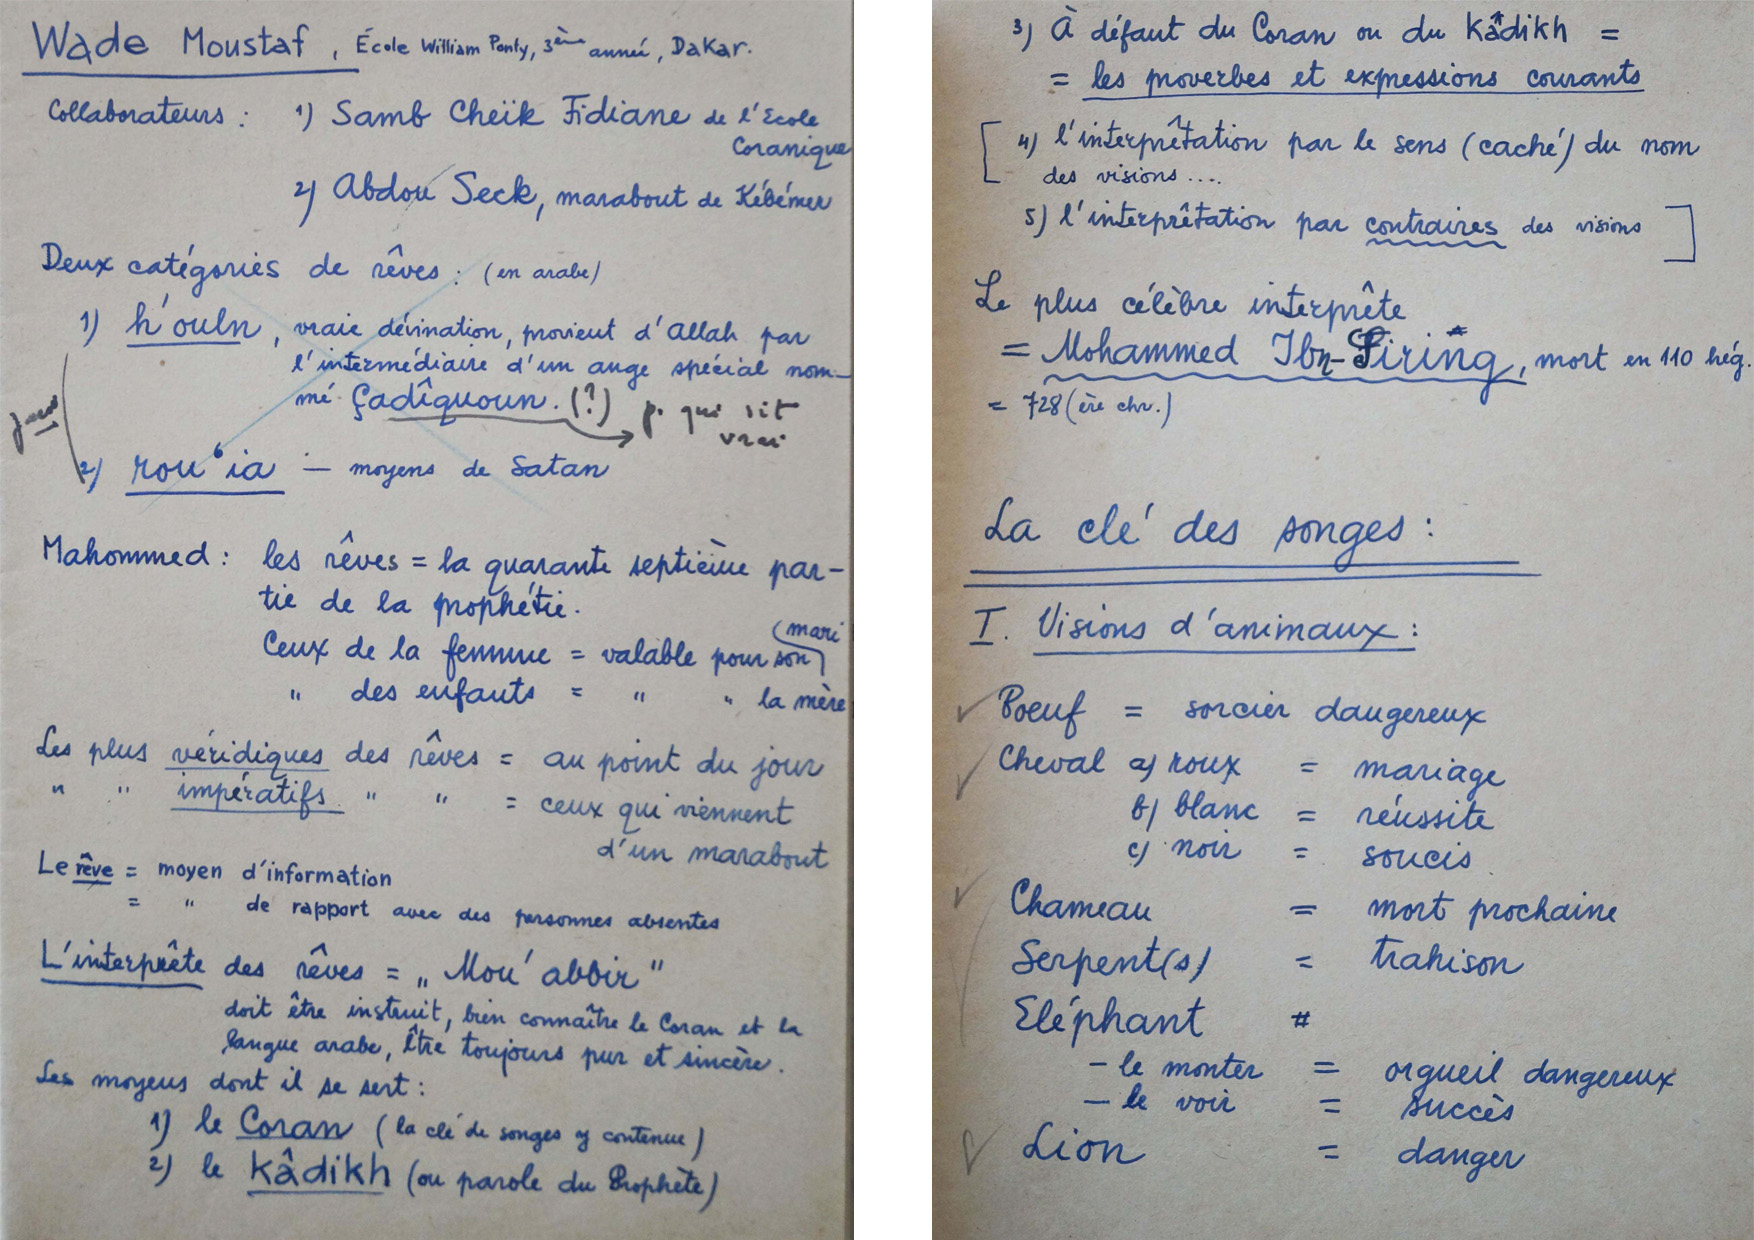 Wade Moustaf, École William Ponty, 3ème année, Dakar.
Collaborateurs : 1) Samb Cheïk Fidiane de l'École
Coranique
2) Abdou Seck, marabout de Kébémer
Deux catégories de rêves : (en arabe)
1) h'ouln, vraie dévination, provient d'Allah par
l'intermédiaire d'un ange spécial nom-
mé Çadîquoun. (?) p. qui dit
vrai
2) rou'ia — moyens de Satan
Mahommed : les rêves = la quarante septième par-
tie de la prophétie.
(mari)
Ceux de la femme = valable pour son
" des enfants = " " la mère
Les plus véridiques des rêves = au point du jour
" " impératifs " " = ceux qui viennent
d'un marabout
Le rêve = moyen d'information
= " de rapport avec des personnes absentes
L'interprête des rêves = „Mou'abbir"
doit être instruit, bien connaître le Coran et la
langue arabe, être toujours pur et sincère.
Les moyens dont il se sert :
1) le Coran (la clé de songes y contenue)
2) le Kâdikh (ou parole du Prophète)
3) À défaut du Coran ou du Kâdikh =
= les proverbes et expressions courants
[4) l'interprêtation par le sens (caché) du nom
des visions....
5) l'interprêtation par contraires des visions]
Le plus célèbre interprête
= Mohammed Ibn-Siring, mort en 110 hég.
= 728 (ère chr.)
La clé des songes :
I. Visions d'animaux :
Boeuf = sorcier dangereux
Cheval a) roux = mariage
b) blanc = réussite
c) noir = soucis
Chameau = mort prochaine
Serpent(s) = trahison
Eléphant #
- le monter = orgueil dangereux
- le voir = succès
Lion = danger